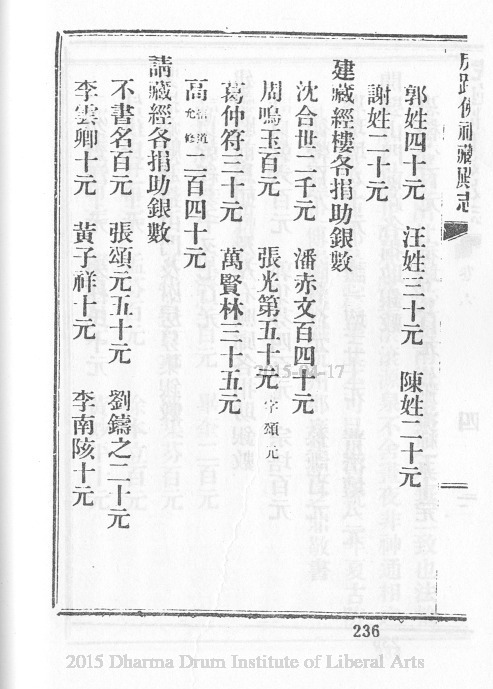 佛祖藏殿志
郭姓四十元 汪姓三十元 陳姓二十元
謝姓二十元
建藏經樓各捐助銀數
沈合世二千元 潘赤文百四十元
周鳴玉百元 張光第五十元 字頌元
葛仲符三十元 萬賢林三十五元
高 道 允修 二百四十元
請藏經各捐助銀數
不書名百元 張頌元五十元 劉鑄之二十元
李雲卿十元 黃子祥十元 李南陔十元
2015-04-17
236
2015 Dharma Drum Institute of Liberal Arts